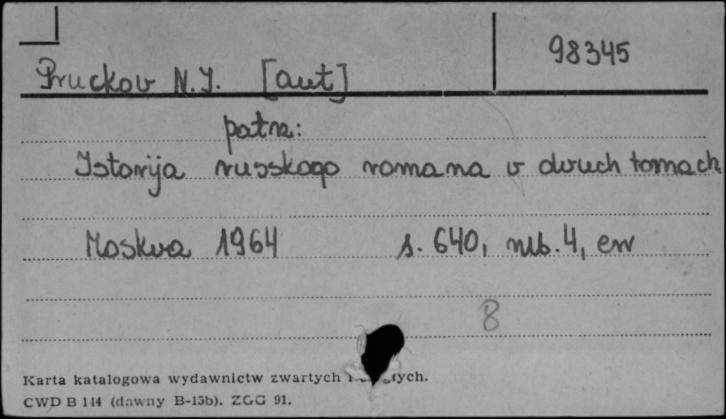 98345
Pruckov N.I. [aut]
patrz:
Istorija russkogo romana v dvuch tomach
Moskva 1964 s. 640, rub. 4, err
8
Karta katalogowa wydawnictw zwartych i
CWD B 144 (dawny B-15b). ZGG 91.